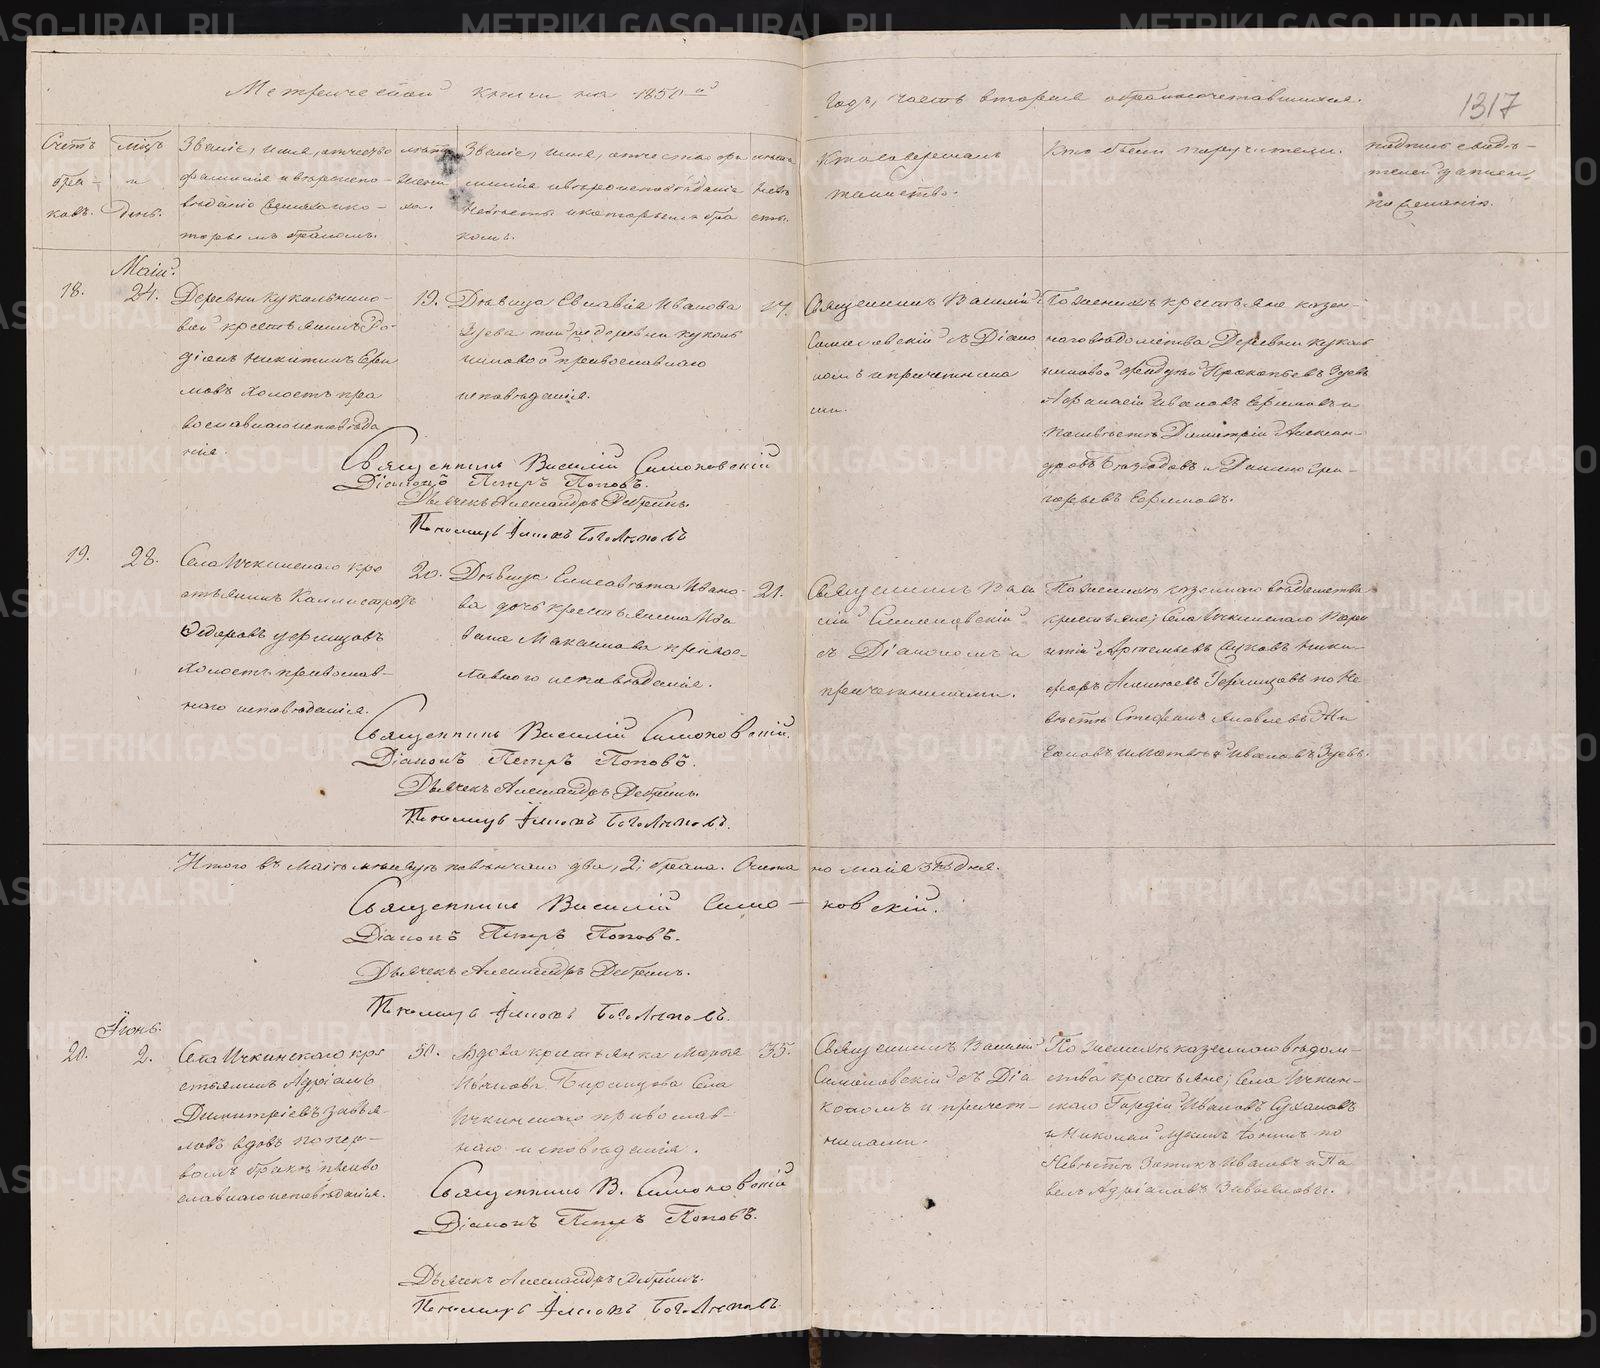 Метрической книги на 1850-й
Годъ, часть вторая о бракосочетавшихся.
1317
Счетъ браковъ.
Мѣцъ и День.
Званіе, имя, отчество
фамилія и вѣроиспо-
вѣданіе жениха и ко-
торымъ бракомъ.
лѣта жениха.
Званіе, имя, отчество фа-
милія и вѣроисповѣданіе
невѣсты и которымъ бра
комъ.
лѣта невѣсты.
Кто совершалъ
таинство.
Кто были поручители.
подпись свидѣ-
телей записи
по желанію.
Маій.
18.
24.
Деревни Кукольнико-
вой крестьянинъ Ро-
діонъ Никитинъ Ефи
мовъ холостъ пра
вославнаго исповѣда
нія.
19.
Дѣвица Евлавія Иванова
Зуева той же деревни Куколь
никовой православнаго
исповѣданія.
Священникъ Василій
Симоновскій съ Діако
номъ и причетника
ми.
По женихѣ крестьяне казен-
наго вѣдомства Деревни Куколь
никовой Прокопьевъ Зуевъ
Афанасій Ивановъ Ефимовъ и
по невѣстѣ Димитрій Алексан-
дровъ и Данило Гри-
горьевъ Ефимовъ.
Священникъ Василій Симоновскій
Діаконъ Петръ Поповъ.
Дьячекъ Александръ Дебринъ.
Пономарь Боголѣповъ
19.
28.
Села Ичкинскаго кре
стьянинъ Каллистратъ
Федоровъ
холостъ православ-
наго исповѣданія.
20.
Дѣвица Елисавета Ивано-
ва дочь крестьянина Ива
на Макаинова правос-
лавнаго исповѣданія.
21.
Священникъ Васи
лій Симоновскій
съ Діакономъ и
причетниками.
По женихѣ казеннаго вѣдомства
крестьяне; Села Ичкинскаго
Артемьевъ Ники-
форъ по не
вѣстѣ Стефанъ Яковлевъ
и Матвѣй Ивановъ Зуевъ.
Священникъ Василій Симоновскій.
Діаконъ Петръ Поповъ.
Дьячекъ Александръ Дебринъ.
Пономарь Боголѣповъ.
Итого въ Маіѣ мѣсяцѣ повѣнчано два, 2, брака.
Священникъ Василій Симо-новскій.
Діаконъ Петръ Поповъ.
Дьячекъ Александръ Дебринъ.
Пономарь Боголѣповъ.
Іюнь.
20.
2.
Села Ичкинскаго кре
стьянинъ Адріанъ
Димитріевъ Завья-
ловъ вдовъ по пер-
вомъ бракѣ право
славнаго исповѣданія.
50.
Вдова крестьянка Марья
Села
Ичкинскаго православ-
наго исповѣданія.
35.
Священникъ Василій
Симоновскій съ Діа
кономъ и причет-
никами.
По женихѣ казеннаго вѣдом-
ства крестьяне; Села Ичкин-
скаго Гордій Ивановъ Сухановъ
и Николай Лукинъ по
невѣстѣ Ивановъ и Па
велъ Адріановъ Завьяловы.
Священникъ В. Симоновскій
Діаконъ Петръ Поповъ.
Дьячекъ Александръ Дебринъ.
Пономарь Боголѣповъ.
METRIKI.GASO-URAL.RU